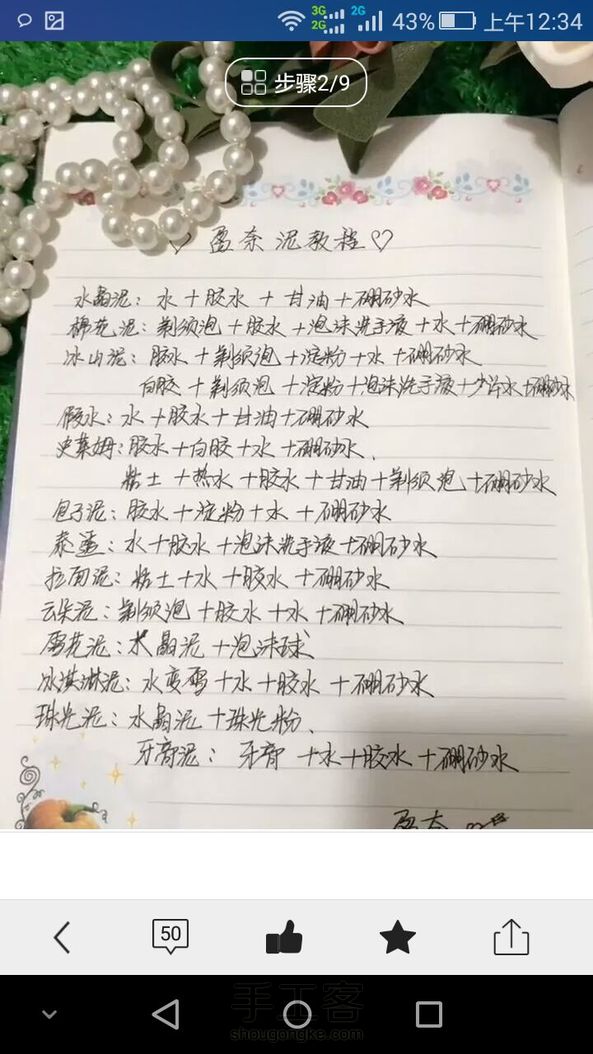 3G
2G
2G
43%
上午12:34
步骤2/9
盈奈泥教程♡
水晶泥：水+胶水+甘油+硼砂水
棉花泥：剃须泡+胶水+泡沫洗手液+水+硼砂水
冰山泥：胶水+剃须泡+淀粉+水+硼砂水
白胶+剃须泡+淀粉+泡沫洗手液+少许水+硼砂水
假水：水+胶水+甘油+硼砂水
史莱姆：胶水+白胶+水+硼砂水、
粘土+热水+胶水+甘油+剃须泡+硼砂水
包子泥：胶水+淀粉+水+硼砂水
蒸蛋：水+胶水+泡沫洗手液+硼砂水
拉面泥：粘土+水+胶水+硼砂水
云朵泥：剃须泡+胶水+水+硼砂水
雪花泥：水晶泥+泡沫球
冰淇淋泥：水变雪+水+胶水+硼砂水
珠光泥：水晶泥+珠光粉、
牙膏泥：牙膏+水+胶水+硼砂水
50
手工客
shougongke.com